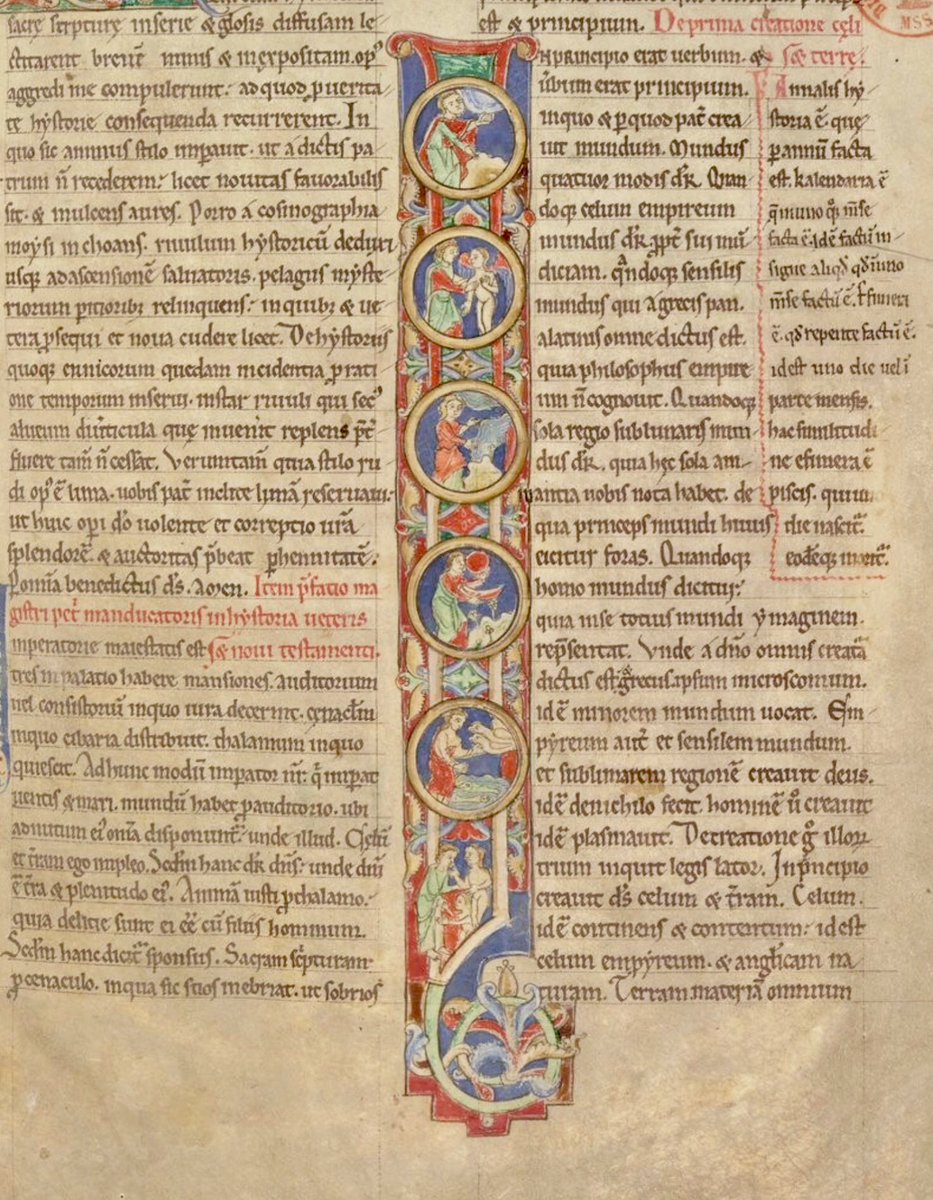 sacre scripture inserie & glosis diffusam le
ctitarent brevē nimis & inexpositam. op'
aggredi me compulerunt: ad quod p verita
te hystorie consequenda recurrerent. In
quo sic animus stilo impavit. ut a dictis pa
trum n̄ recederem: licet novitas favorabilis
sit. & mulcens aures. Porro a cosmographia
moysi inchoans. rivulum hystoricū deduxi
usq; ad ascensionē salvatoris. pelagus myste
riorum pitioribz relinquens: in quibz & ve
tera psequi et nova cudere licet. De hystoriis
quoq; ennicorum quedam incidentia p rati
one temporum inserui. instar rivuli qui sec'
alveum divticula que invenit replens pt'
fluere tam n̄ cessat. Verumtam quia stilo ru
di op' ē lima. vobis pat inclite limā reservavi.
ut huic opi dō volente et correptio vr̄a
splendorē. & auctoritas pbeat phennitatē.
P omia benedictus ds. Amen. Item pfatio ma
gistri petri manducatoris in hystoria veteris
mperatorie maiestatis est & novi testamenti.
tres in palatio habere mansiones. auditorium
vel consistoriū in quo iura decernit. cenaclm
in quo cibaria distribuit. thalamum in quo
quiescit. Ad hunc modū impator nr̄: q̄ impat
ventis & mari. mundū habet p auditorio. ubi
ad nutum ei' om̄ia disponuntr̄. unde illud. Celū
et tr̄am ego impleo. Sedm hanc dr̄ dn̄s: unde dn̄i
ē tr̄a & plenitudo ei'. Animā iusti p thalamo.
quia delicie sunt ei eē cū filiis hominum.
Sedm hanc dicit̄ sponsus. Sacram scripturam
p cenaculo. in qua sic suos inebriat. ut sobrios
est & principium. De prima creatione celi
N principio erat verbum. & & terre.
ūbum erat principium.
in quo & p quod pat crea
vit mundum. Mundus
quatuor modis dr̄. Quan
doq; celum empireum
mundus dr̄. ppt sui mū
diciam. qn̄doq; sensilis
mundus qui a grecis pan.
a latinis omne dictus est.
quia philosophus empire
um n̄ cognovit. Quandoq;
sola regio sublunaris mun
dus dr̄. quia hec sola ani
mantia nobis nota habet. de
qua princeps mundi huius
eicitur foras. Quandoq;
homo mundus dicitur:
quia in se totius mundi ymaginem.
rep̄sentat. Unde a dn̄o omnis creat̄a
dictus est. & grecus ipsum microscomum.
idē minorem mundum vocat. Em
pyreum aut̄ et sensilem mundum.
et sublunarem regionē creavit deus.
idē de nichilo fecit. hominē v̄o creavit
idē plasmavit. De creatione g̊ illor̄
trium inquit legis lator. In principio
creavit ds celum & tr̄am. Celum.
idē continens & contentum: id est
celum empyreum. & anglicam na
turam. Terram materiā omnium
Annalis hy
storia ē que
p annū facta
est. kalendaria ē
q̄ in uno q̄. m̄se
facta ē. idē factū in
signe aliq̄d qd̄ i uno
m̄se factū ē. t̄ efimeri
ē. qd̄ repente factū ē.
id est uno die vel ī
parte mensis.
hac similitudi
ne efimera ē
piscis. qui un̄
die nascit̄.
eodēq; morit̄.
MSS